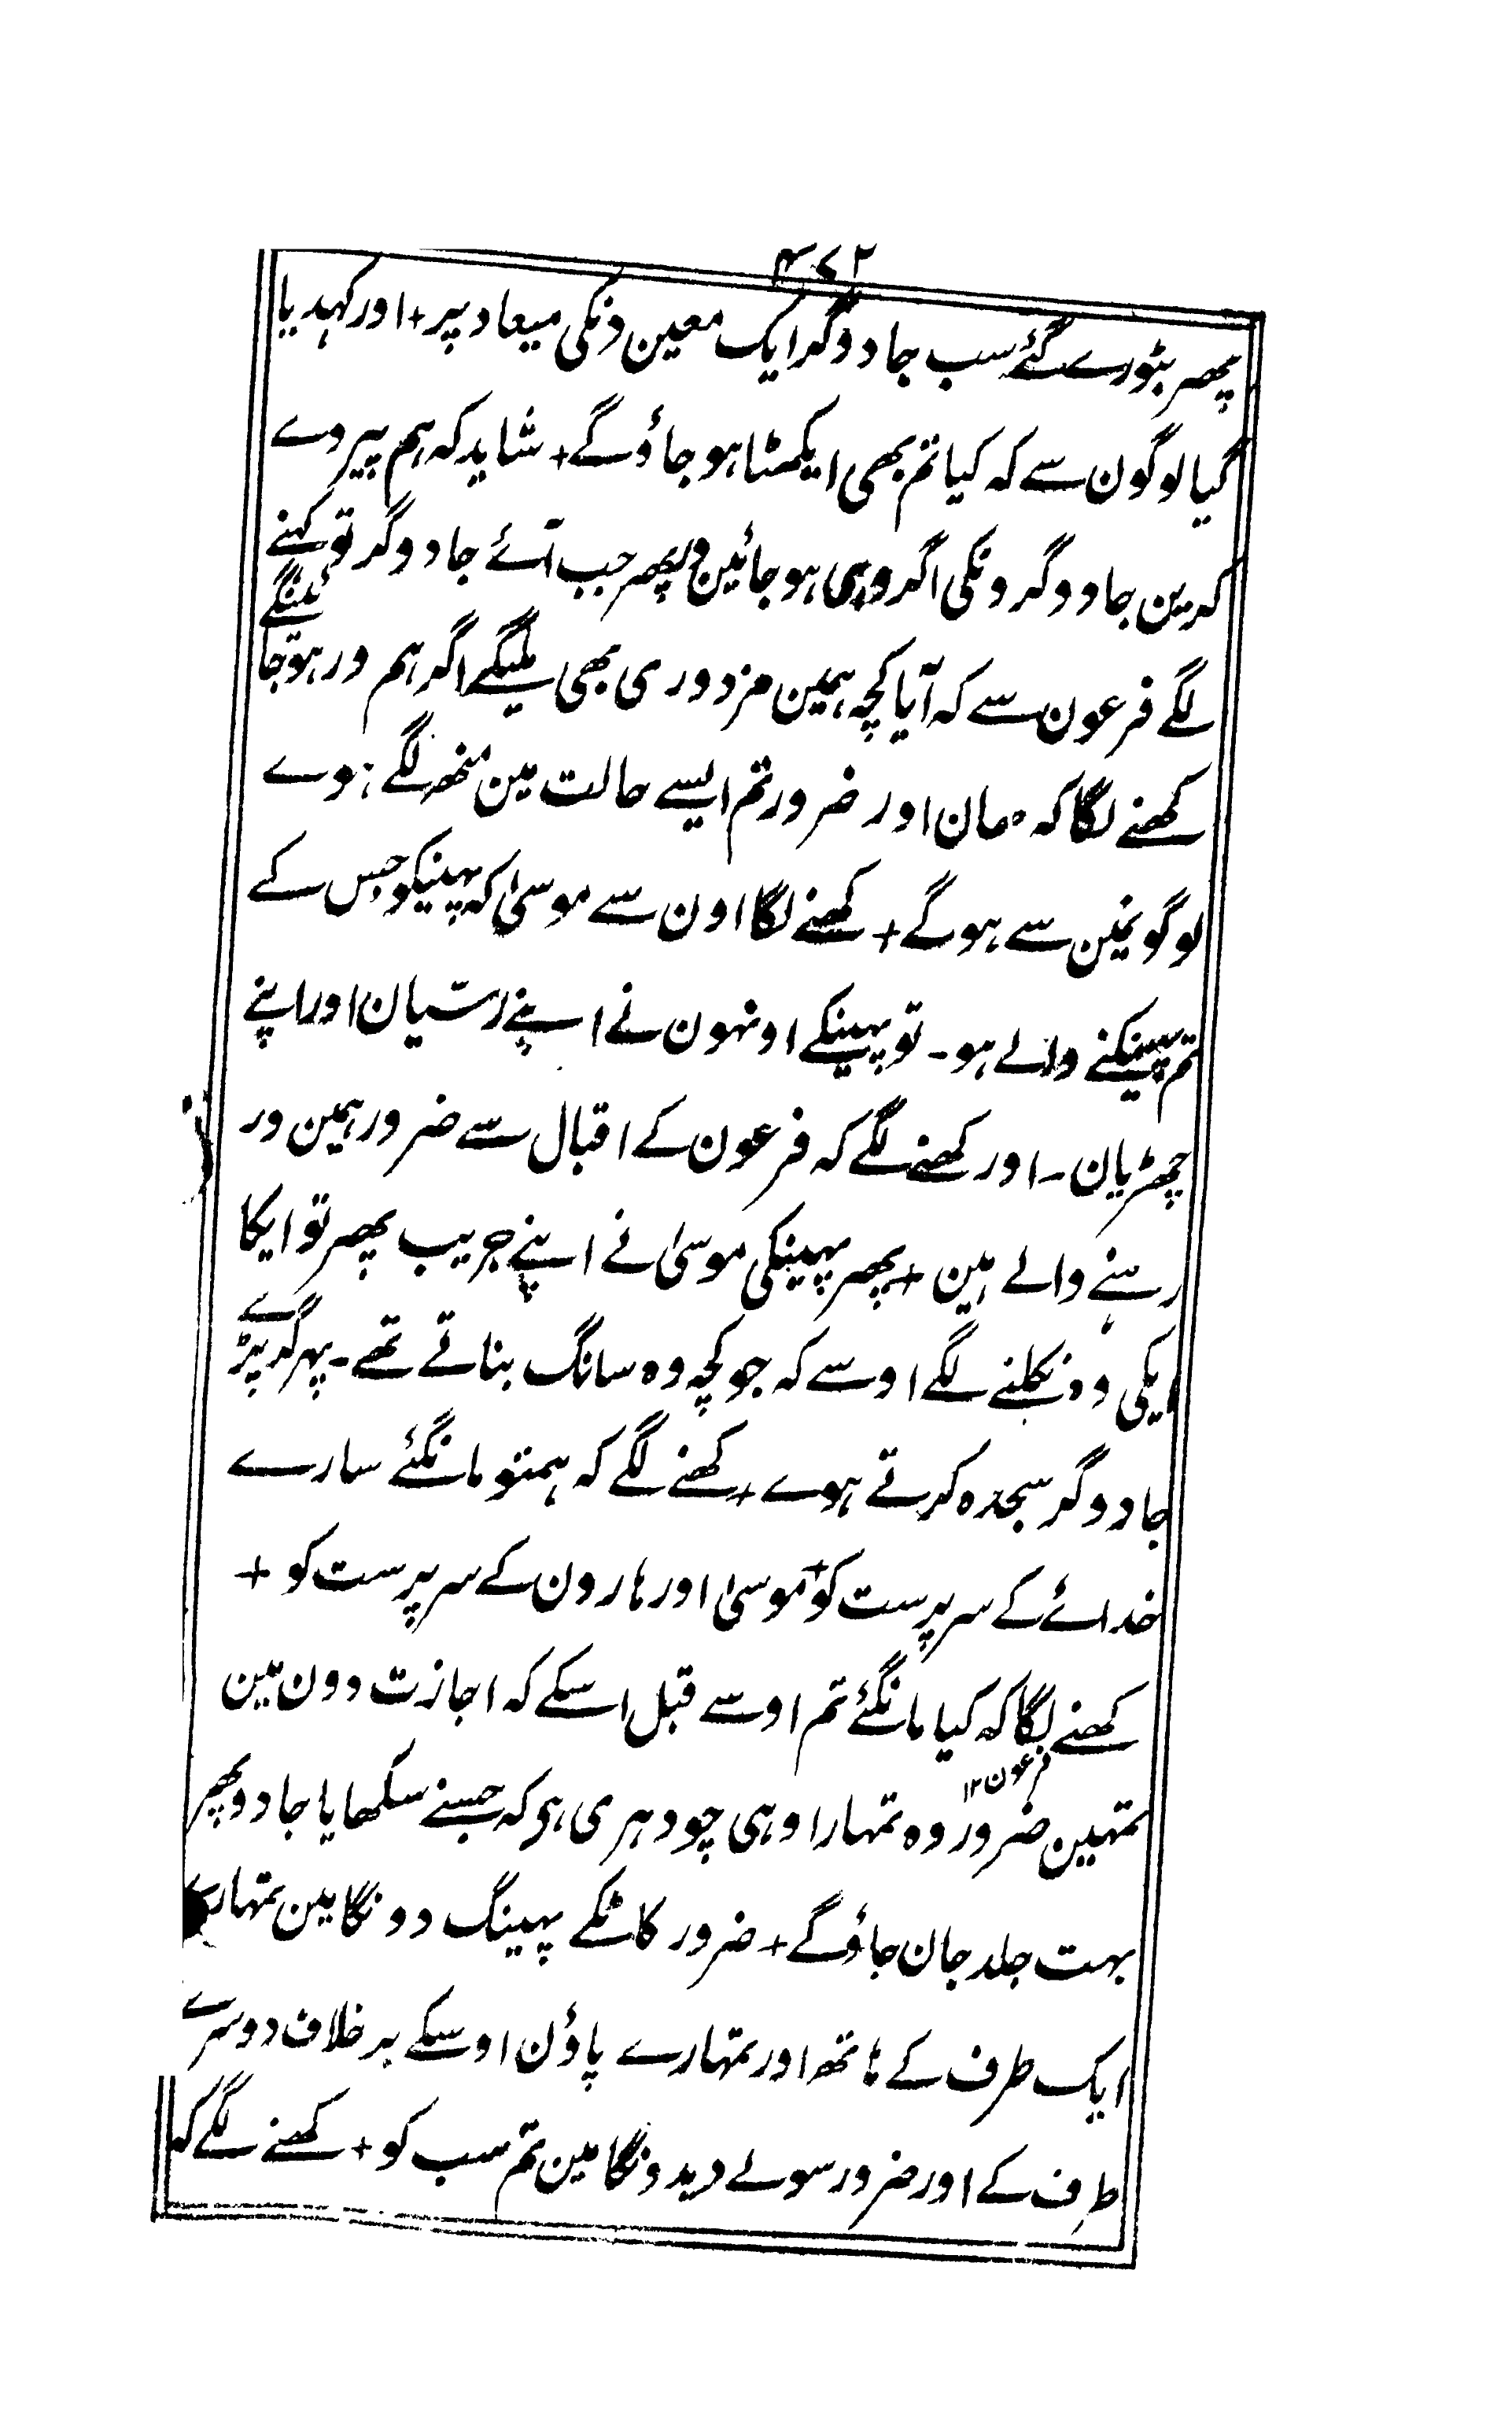 ۴۷۲
پھر بٹورے گئے سب جادوگر ایک معین دنکی میعاد پر+ اور کہدیا
گیا لوگون سے کہ کیا تم بھی ایکھٹا ہو جاؤ گے+ شاید کہ ہم پیروے
کرین جادوگرونکی اگر وہی ہو جائین ور پھر جب آئے جادوگر تو کہنے
لگے فرعون سے کہ آیا کچہ ہمین مزدوری بھی ملیگے اگر ہم ور ہو جا
ئینگے
کھنے لگا کہ ھان اور ضرور تم ایسے حالت مین منھ لگے ہوے
لوگونمین سے ہو گے+ کھنے لگا اون سے موسیٰ کہ پہینکو جس کے
تم پہینکنے والے ہو۔ تو پہینکے اونہون نے اپنے رسّیان اور اپنے
چھڑیان۔ اور کھنے لگے کہ فرعون کے اقبال سے ضرور ہمین ور
رہنے والے ہین+ پھر پہینکی موسیٰ نے اپنے جریب پھر تو ایکا
یکی وہ نکلنے لگے اوسے کہ جو کچہ وہ سانگ بناتے تھے۔ پہر گر پڑے
جادوگر سجدہ کرتے ہوے+ کھنے لگے کہ ہمتو مانگئے سارے
خدائے کے سرپرست کو+ موسیٰ اور ہارون کے سرپرست کو+
کھنے لگا کہ کیا مانگئے تم اوسے قبل اسکے کہ اجازت دون مین
فرعون۱۲
تمہین ضرور وہ تمہارا وہی چودہری ہی کہ جسنے سکھایا جادو پھر
بہت جلد جان جاؤ گے+ ضرور کاٹکے پہینگ دونگا مین تمہارے
ایک طرف کے ہاتھ اور تمہارے پاؤن اوسکے برخلاف دوسرے
طرف کے اور ضرور سولے دیدونگا مین تم سب کو+ کھنے لگے کہ